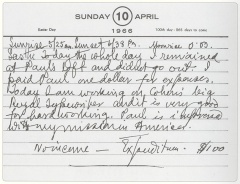 SUNDAY 10 APRIL
1966
100th day - 265 days to come
Sunrise 5/25 am Sunset 6/38 Pm. Moonrise 0'00.
Today the whole day I remained
at Paul's Apt and didn't go out. I
paid Paul one dollar for expenses.
Today I am working on Cohen's big
Royal typewriter and it is very good
for hard working. Paul is
with my mission in America.
No income — Expenditure. $1.00